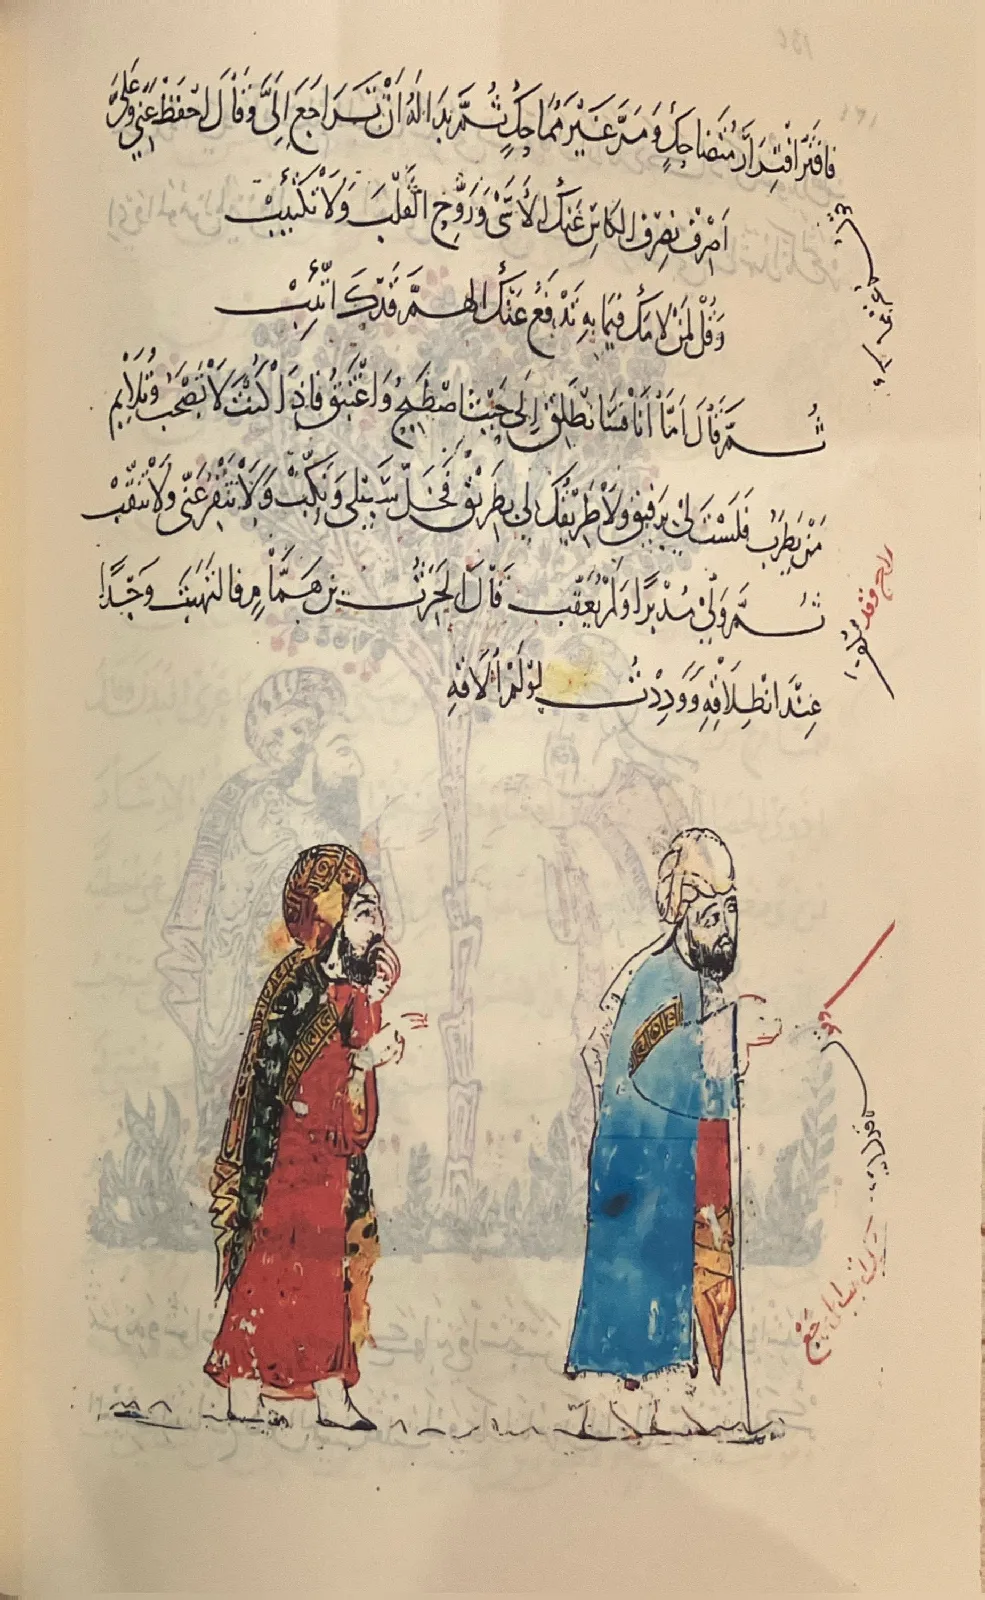 فَافْتَرَّ افْتِرَارَ مُتَضَاحِكٍ وَمَرَّ غَيْرَ مُمَاحِكٍ ثُمَّ بَدَا لَهُ أَنْ تَرَاجَعَ إِلَيَّ وَقَالَ احْفَظْ عَنِّي وَعَلَيَّ
اصْرِفْ بِصِرْفِ الكَاسِ عَنْكَ الأَسَى وَرَوِّحِ القَلْبَ وَلَا تَكْتَئِبْ
وَقُلْ لِمَنْ لَامَكَ فِيمَا بِهِ تَدْفَعُ عَنْكَ الهَمَّ قَدْكَ اتَّئِبْ
ثُمَّ قَالَ أَمَّا أَنَا فَسَأَنْطَلِقُ إِلَى حَيْثُ أَصْطَبِحُ وَأَغْتَبِقُ فَإِذَا كُنْتَ لَا تَصْحَبُ وَتُلَائِمُ
مَنْ يَطْرَبُ فَلَسْتَ لِي بِرَفِيقٍ وَلَا طَرِيقُكَ لِي بِطَرِيقٍ فَخَلِّ سَبِيلِي وَنَكِّبْ وَلَا تُنَقِّرْ عَنِّي وَلَا تُنَقِّبْ
ثُمَّ وَلَّى مُدْبِرًا وَلَمْ يُعَقِّبْ قَالَ الحَرْثُ بْنُ هَمَّامٍ فَالْتَهَبْتُ وَجْدًا
عِنْدَ انْطِلَاقِهِ وَوَدِدْتُ لَوْ لَمْ أُلَاقِهِ